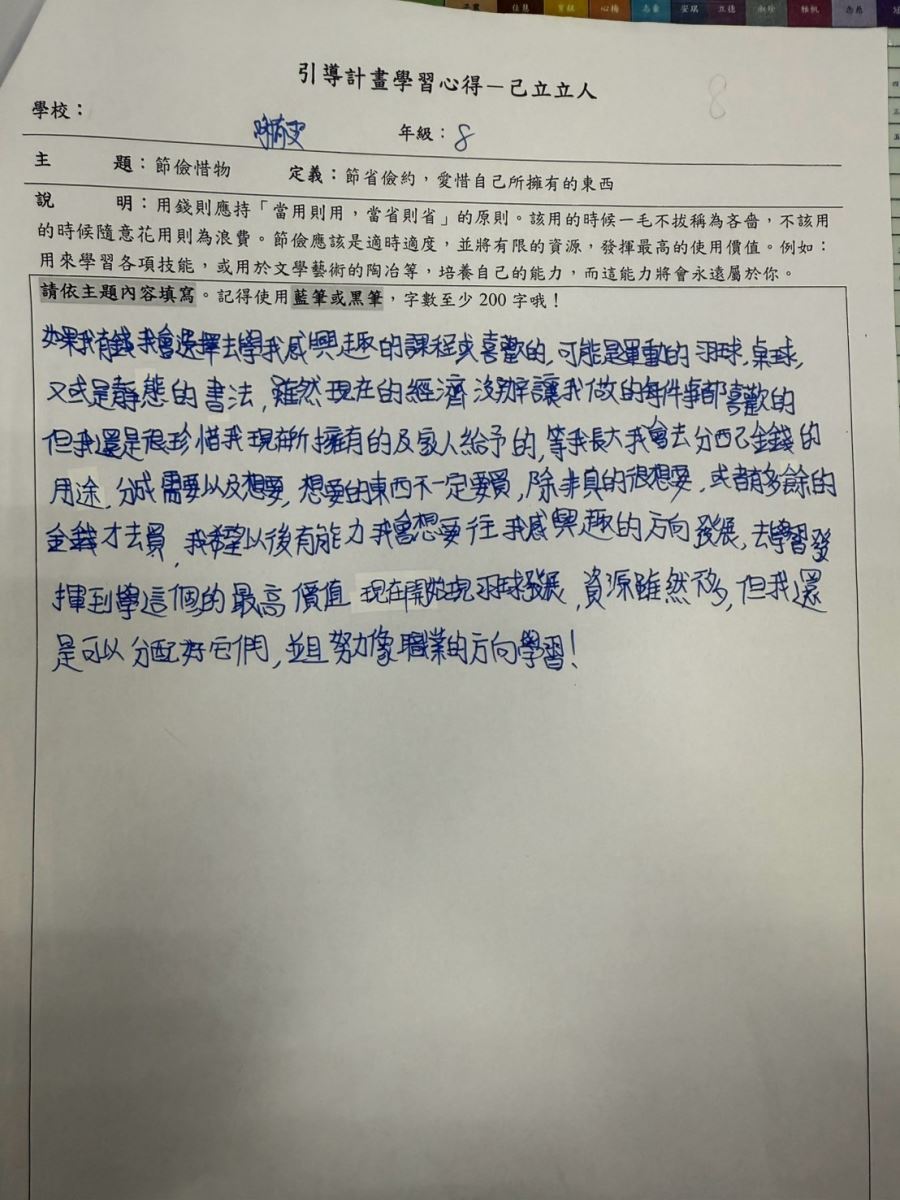 佳慧 心楠 志豪 安琪 立德 淑玲 雅帆
引導計畫學習心得－己立立人
8
學校：
年級：8
主 題：節儉惜物 定義：節省儉約，愛惜自己所擁有的東西
說 明：用錢則應持「當用則用，當省則省」的原則。該用的時候一毛不拔稱為吝嗇，不該用
的時候隨意花用則為浪費。節儉應該是適時適度，並將有限的資源，發揮最高的使用價值。例如：
用來學習各項技能，或用於文學藝術的陶冶等，培養自己的能力，而這能力將會永遠屬於你。
請依主題內容填寫。記得使用藍筆或黑筆，字數至少 200 字哦！
如果我有錢我會選擇去學我感興趣的課程或喜歡的,可能是運動的羽球,桌球,
又或是靜態的書法,雖然現在的經濟沒辦讓我做的每件事都喜歡的
但我還是很珍惜我現在所擁有的及家人給予的,等我長大我會去分配金錢的
用途,分成需要以及想要,想要的東西不一定要買,除非真的很想要,或者有多餘的
金錢才去買,我希望以後有能力我會想要往我感興趣的方向發展,去學習發
揮到學這個的最高價值 現在開始現羽球發展,資源雖然不多,但我還
是可以分配好它們,並且努力像職業的方向學習!